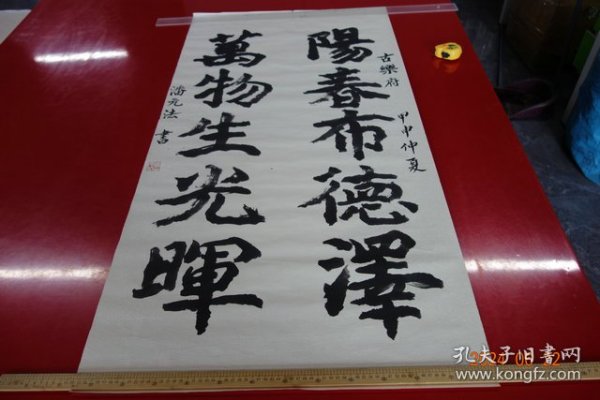 陽春布德澤
古樂府
甲申仲夏
萬物生光暉
潘元法 書
孔夫子旧書网
www.kongfz.com